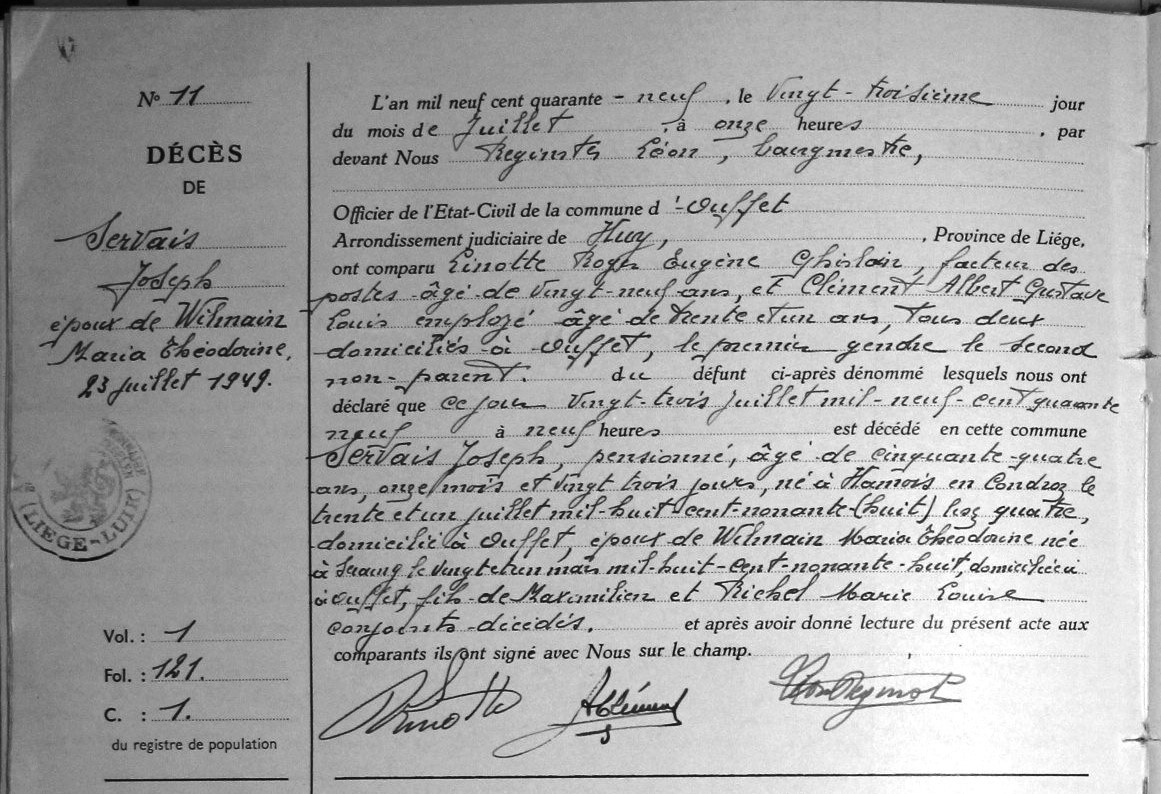 N° 11
DÉCÈS
DE
Servais
Joseph
époux de Wilmain
Maria Théodorine,
23 juillet 1949.
LIEGE-LUIK
Vol. : 1
Fol. : 121.
C. : 1.
du registre de population
L'an mil neuf cent quarante - neuf , le Vingt-troisième jour
du mois de Juillet , à onze heures , par
devant Nous Léon, bourgmestre,
Officier de l'Etat-Civil de la commune d '-Ouffet
Arrondissement judiciaire de Huy, , Province de Liége,
ont comparu Linotte Roger Eugène Ghislain, facteur des
postes âgé de Vingt-neuf ans, et Clément Albert Gustave
Louis employé âgé de trente et un ans, Tous deux
domiciliés à Ouffet, le premier gendre le second
non-parent. du défunt ci-après dénommé lesquels nous ont
déclaré que ce jour Vingt-trois juillet mil-neuf-cent quarante
neuf à neuf heures est décédé en cette commune
Servais Joseph, pensionné, âgé de cinquante-quatre
ans, onze mois et vingt trois jours, né à Hamois en Condroz le
trente et un juillet mil-huit cent-nonante-(huit) quatre,
domicilié à Ouffet, époux de Wilmain Maria Théodorine née
à Seraing le vingt et un mars mil-huit-cent-nonante-huit, domiciliée à
à Ouffet, fils de Maximilien et Richel Marie Louise
conjoints-décédés. et après avoir donné lecture du présent acte aux
comparants ils ont signé avec Nous sur le champ.
Linotte A Clément